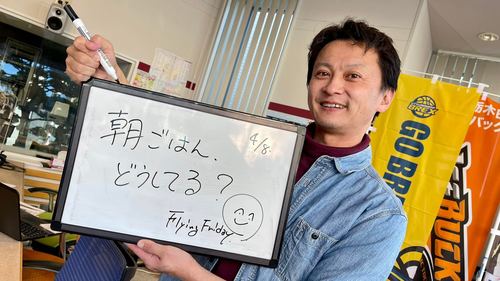 4/8
朝ごはん、
どうしてる?
Flying Friday
BREX
GO BR
栃木
バック
BUCK